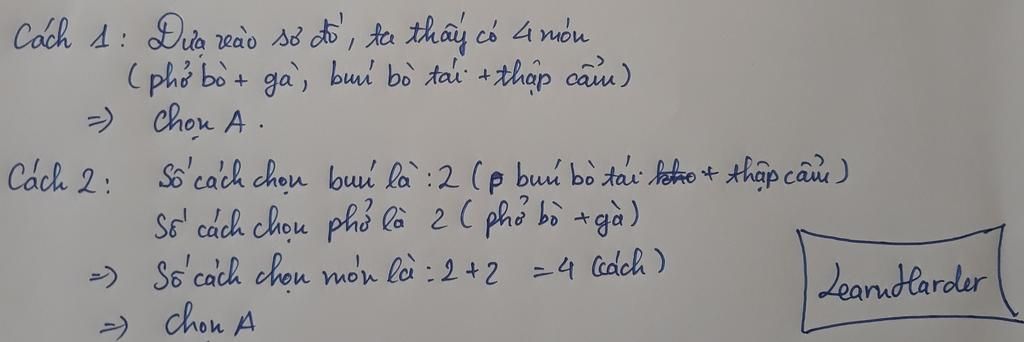 Cách 1: Dựa vào sơ đồ, ta thấy có 4 món
(phở bò + gà, bún bò tái + thập cẩm)
=> Chọn A.
Cách 2: Số cách chọn bún là: 2 (p bún bò tái + thập cẩm)
Số cách chọn phở là 2 (phở bò + gà)
=> Số cách chọn món là: 2 + 2 = 4 (cách)
=> Chọn A
LearnHarder